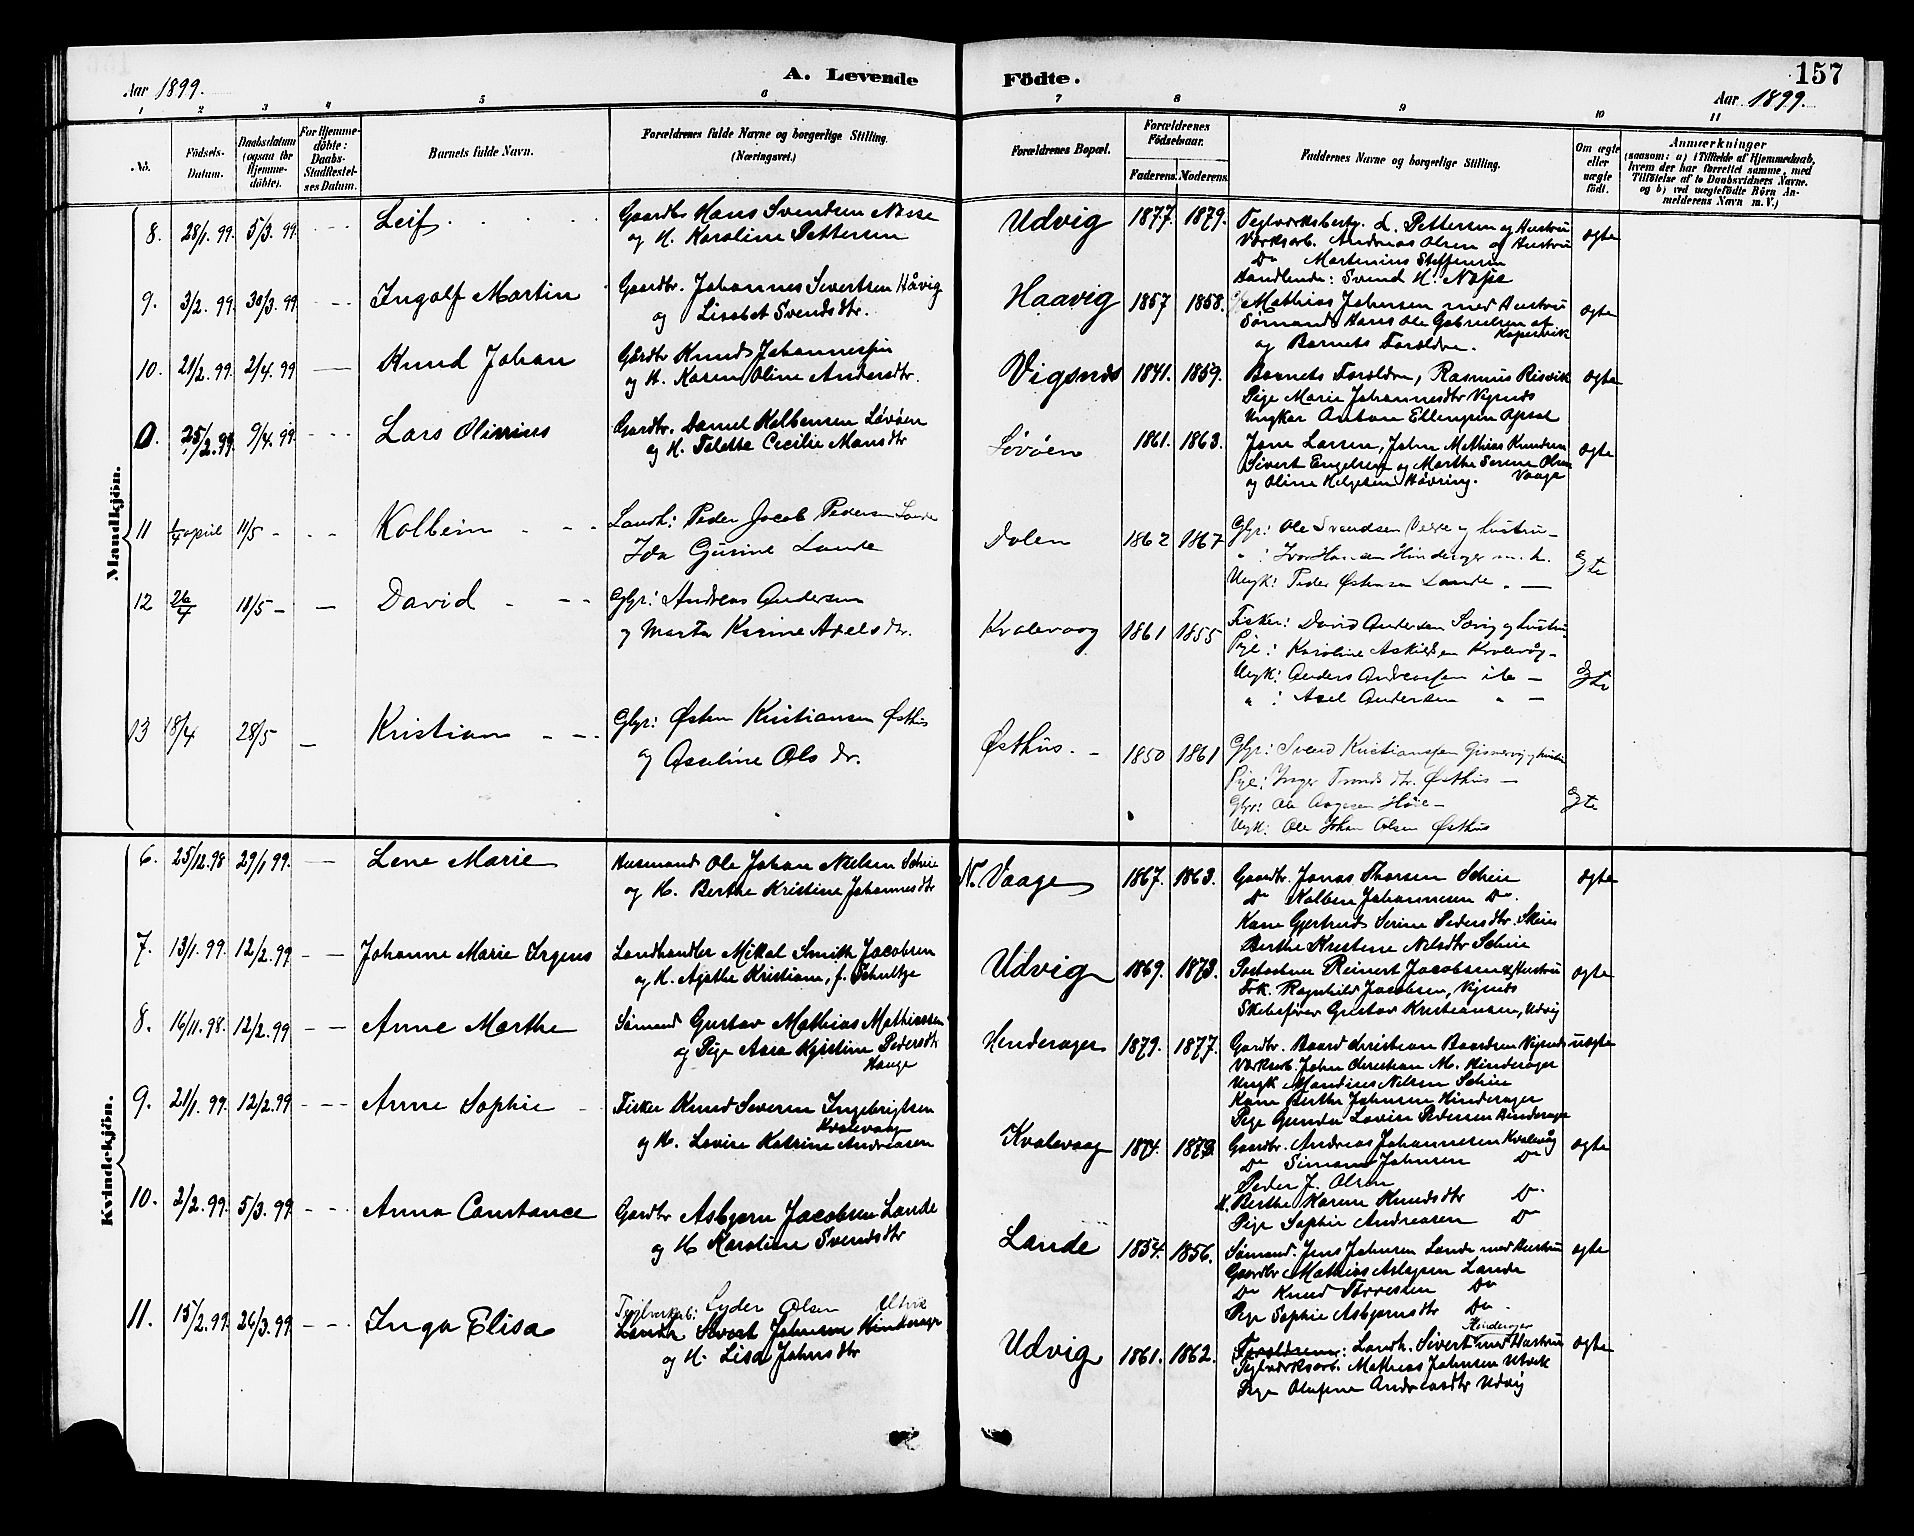 157
Aar 1899.
A. Levende Födte.
Aar 1899.
1 2 3 4 5 6 7 8 9 10 11
No.
Födsels-Datum.
Daabsdatum (ogsaa for Hjemmedöbte).
For Hjemmedöbte: Daabs-Stadfestelses Datum.
Barnets fulde Navn.
Forældrenes fulde Navne og borgerlige Stilling. (Næringsvei.)
Forældrenes Bopæl.
Forældrenes Fødselsaar.
Faderens. Moderens.
Faddernes Navne og borgerlige Stilling.
Om ægte eller uægte födt.
Anmærkninger
(saasom: a) i Tilfælde af Hjemmedaab, hvem der har forrettet samme, med Tilföielse af to Daabsvidners Navne. og b) ved uægtefödte Börn Anmelderens Navn m. V.)
Mandkjön.
8. 28/1. 99. 5/3. 99. Leif
Gaardbr Hans Svendsen
og H. Karoline Pettersen
Udvig 1877. 1879.
L. Pettersen og Hustru
Værksarb. Andreas Olsen og Hustru
Do Martenius Steffensen
Handlende: Svend H.
ægte
9. 3/2. 99. 30/3. 99. Ingolf Martin
Gaardbr. Johannes Sivertsen Håvig
og Lisabet Svendsdtr.
Haavig 1857 1858.
Mathias Johnsen med Hustru
Sømand Hans Ole Gabrielsen af Kopervik
og Barnets Forældre.
ægte
10. 21/2. 99. 2/4. 99 Knud Johan
Gårdbr Knud Johannessen
og H. Karen Oline Andersdtr.
Vigsnæs 1841. 1859.
Barnets Forældre, Rasmus Risvik
Pige Marie Johannesdtr Vigsnæs
Ungkar Anton Ellingsen Opsal
ægte
0. 25/2. 99. 9/4. 99. Lars Olinius
Gardbr. Daniel Kolbensen Løvøen
og H. Talette Cecilie Monsdtr
Løvøen 1861. 1863.
Jone Larsen, John Mathias Knudsen
Sivert Engelsen og Marthe Serene Olsen Vaage
og Oline Helgesen Håvring.
ægte
11 1/4 april 11/5 Kolbein
Landh: Peder Jacob Pedersen Lande
Ida Gurine Lande
Dalen 1862 1867
Gbr: Ole Svendsen og hustru
Hansen Hinderager m. h.
Ungk: Peder Østensen Lande
Egte
12 26/4 18/5 David
Gbr: Andreas Andersen
og Marta Karine Axelsdtr.
Kvalevaag 1861 1855
Fisker: David Andersen Sævig og hustru
Pige: Karoline Askildsen Kvalevåg
Ungk: Anders Andreassen
" : Axel Andersen
Egte
13 18/4 28/5 Kristian
Gbr: Østen Kristiansen Østhus
og Aseline Olsdtr.
Østhus. 1850 1861
Gbr: Svend Kristiansen og hustru
Pige: Inger Trondsdtr. Østhus
Gbr: Ole Aagesen Høie
Ungk: Ole Johan Olsen Østhus
Egte
Kvindekjön.
6. 25/12. 98 29/1. 99. Lene Marie
Husmand Ole Johan Nielsen Scheie
og H. Berthe Kristine Johannesdtr
N. Vaage 1867. 1863.
Gaardbr. Jonas Thorsen Scheie
Do Kolben Johannesen Do.
Kone Gjertrud Serine Pedersdtr. Skeie
Berthe Kristine Nilsdtr Scheie
ægte
7. 13/1. 99. 12/2. 99 Johanne Marie Irgens
Landhandler Mikal Smith Jacobsen
og H. Agathe Kristiane, f. Schultze
Udvig 1869. 1873.
Reinert Jacobsen og Hustru
Frk. Ragnhild Jacobsen, Vigsnæs
Skibsfører Gustav Kristiansen, Udvig
ægte
8. 16/11. 98. 12/2. 99 Anne Marthe
Sømand Gustav Mathias Mathiassen
og Pige Kristine Pedersdtr Hauge
Henderager 1879. 1877.
Gardbr. Baard Christian Baardsen Vigsnæs
Værksarb. John Christian M. Hinderager
Ungk Mandius Nilsen Scheie
Kone Berthe Johnsen Hinderager
Pige Gunda Lovise Pedersen Hinderager
uægte
9. 21/1. 99. 12/2. 99 Anne Sophie
Fisker Knud Severin Ingebrigtsen Kvalevaag
og H. Lovise Katrine Andreasen
Kvalevaag 1874. 1879
Gaardbr. Andreas Johannesen Kvalevåg
Do Simon Johnsen Do
Peder J. Olsen
K. Berthe Karine Knudsdtr Do
Pige Sophie Andreasen Do
ægte
10. 2/2. 99. 5/3. 99 Anna Constance
Gardbr Asbjørn Jacobsen Lande
og H Karoline Svendsdtr
Lande 1854. 1856.
Sømand. Jens Johnsen Lande med Hustru
Gaardbr Mathias Aslagsen Lande
Do Knud Torvesten Do
Pige Sophie Asbjørnsdtr Do.
ægte
11. 15/2. 99. 26/3. 99. Inga Elisa
Teglverksarb: Lyder Olsen Utvik
Landh Sivert Johnsen Hinderager
og H. Lisa Johnsdtr
Udvig 1861. 1862.
Forældrene: Landh. Sivert Hinderager med Hustru
Teglværksarb. Mathias Johnsen Utvik
Pige Olufine Andreasdtr Udvig
ægte